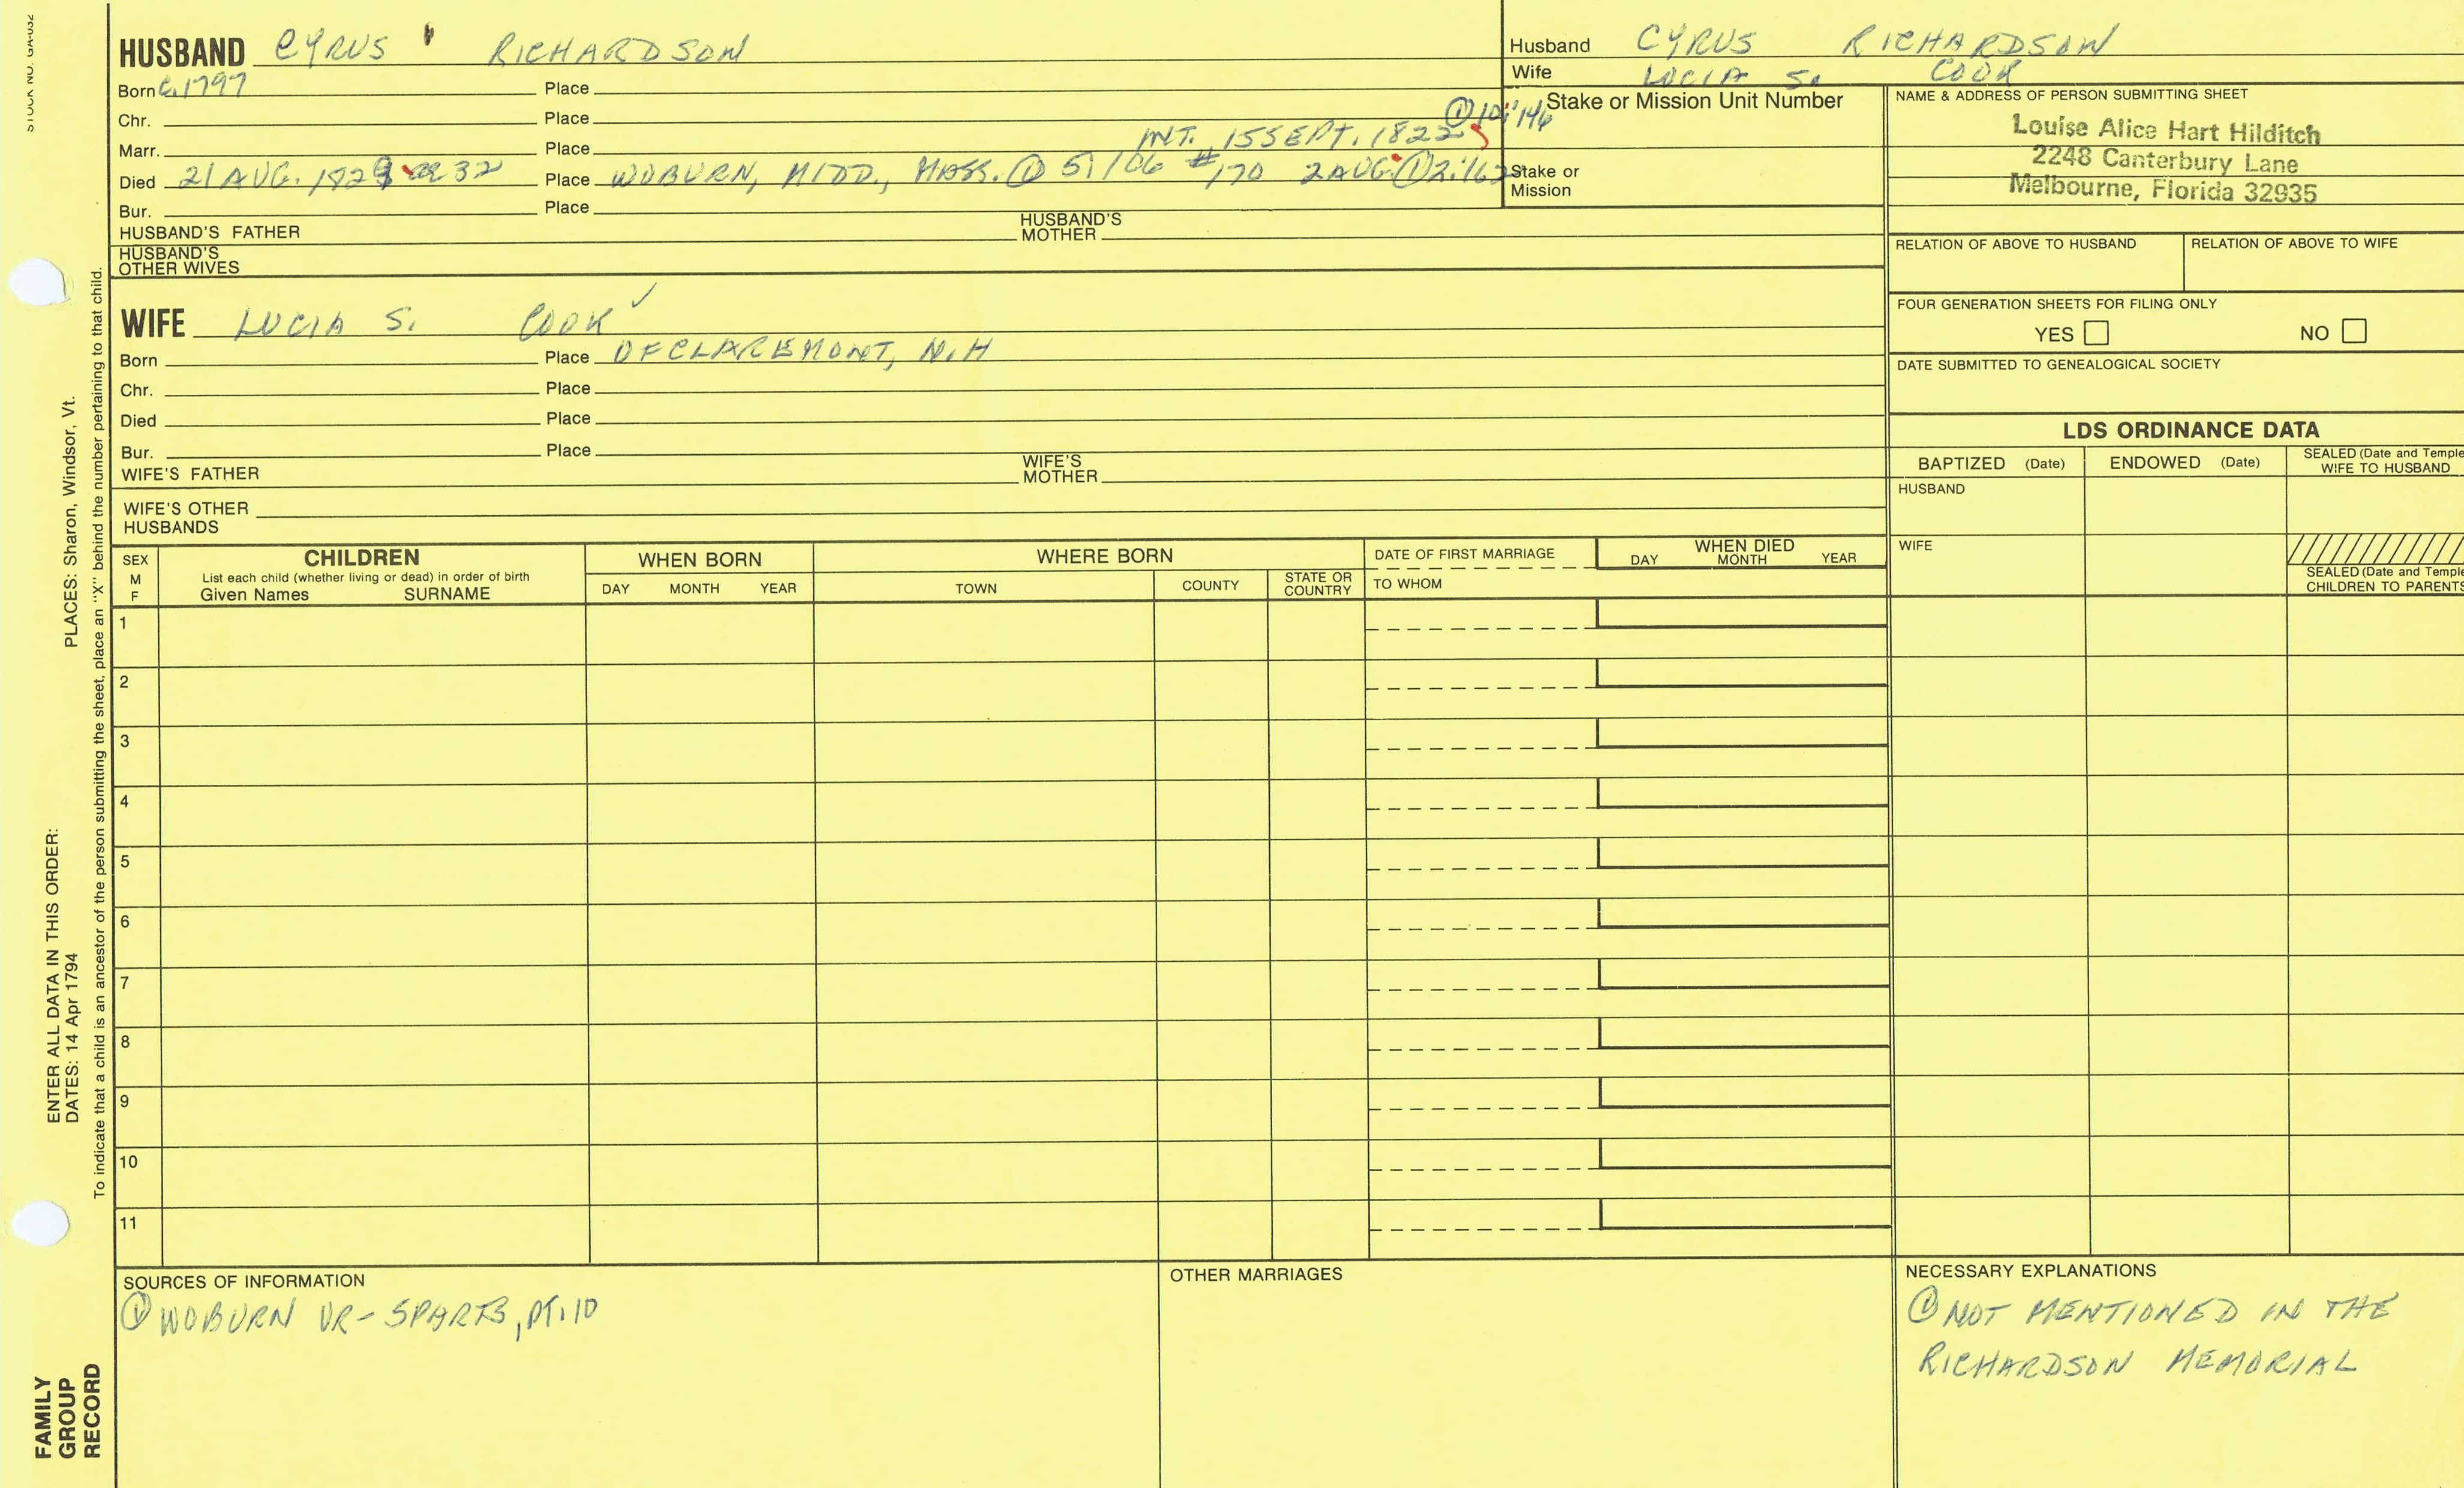 STOCK NO. GA-032
HUSBAND CYRUS RICHARDSON
Born C.1797 Place
Chr. Place
INT. 15 SEPT. 1822 ① 10:146
Marr. Place
Died 21 AUG. 1829 ae 32 Place WOBURN, MIDD., MASS. ① 5/106 #170 2 AUG ① 2:162
Bur. Place
HUSBAND'S FATHER HUSBAND'S MOTHER
HUSBAND'S OTHER WIVES
WIFE LUCIA S. COOK ✓
Born Place OF CLAREMONT, N.H
Chr. Place
Died Place
Bur. Place
WIFE'S FATHER WIFE'S MOTHER
WIFE'S OTHER HUSBANDS
Husband CYRUS RICHARDSON
Wife LUCIA S. COOK
Stake or Mission Unit Number
Stake or Mission
NAME & ADDRESS OF PERSON SUBMITTING SHEET
Louise Alice Hart Hilditch
2248 Canterbury Lane
Melbourne, Florida 32935
RELATION OF ABOVE TO HUSBAND RELATION OF ABOVE TO WIFE
FOUR GENERATION SHEETS FOR FILING ONLY
YES NO
DATE SUBMITTED TO GENEALOGICAL SOCIETY
LDS ORDINANCE DATA
BAPTIZED (Date) ENDOWED (Date) SEALED (Date and Temple
WIFE TO HUSBAND
HUSBAND
WIFE
SEALED (Date and Temple
CHILDREN TO PARENTS
SEX
M
F
CHILDREN
List each child (whether living or dead) in order of birth
Given Names SURNAME
WHEN BORN
DAY MONTH YEAR
WHERE BORN
TOWN COUNTY STATE OR COUNTRY
DATE OF FIRST MARRIAGE
TO WHOM
WHEN DIED
DAY MONTH YEAR
1
2
3
4
5
6
7
8
9
10
11
SOURCES OF INFORMATION
① WOBURN VR - 5 PARTS, PT. 10
OTHER MARRIAGES
NECESSARY EXPLANATIONS
① NOT MENTIONED IN THE
RICHARDSON MEMORIAL
ENTER ALL DATA IN THIS ORDER:
DATES: 14 Apr 1794
PLACES: Sharon, Windsor, Vt.
To indicate that a child is an ancestor of the person submitting the sheet, place an "X" behind the number pertaining to that child.
FAMILY
GROUP
RECORD